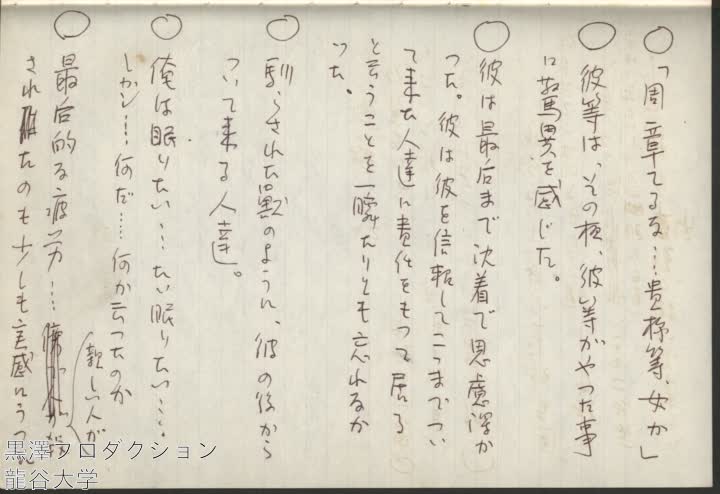 ○「周章てるな…貴様等、女か」
○彼等は、その夜、彼等がやつた事
に驚異を感じた。
○彼は最后まで沈着で思慮深か
つた。彼は彼を信頼してこゝまでつい
て来た人達に責任をもつて居る
と云うことを一瞬たりとも忘れなか
つた。
○馴らされた獣のように、彼の後から
ついて来る人達。
○俺は眠りたい…たい眠りたい……
しかし…何だ……何か云つたのか
○最后的な疲労……
親しい人が
されたのも少しも実感にうつ
黒澤プロダクション
龍谷大学